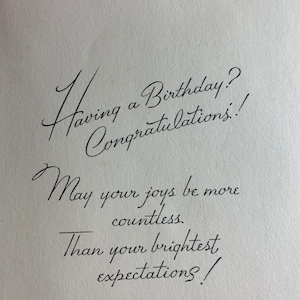 Having a Birthday?
Congratulations!
May your joys be more
countless.
Than your brightest
expectations!